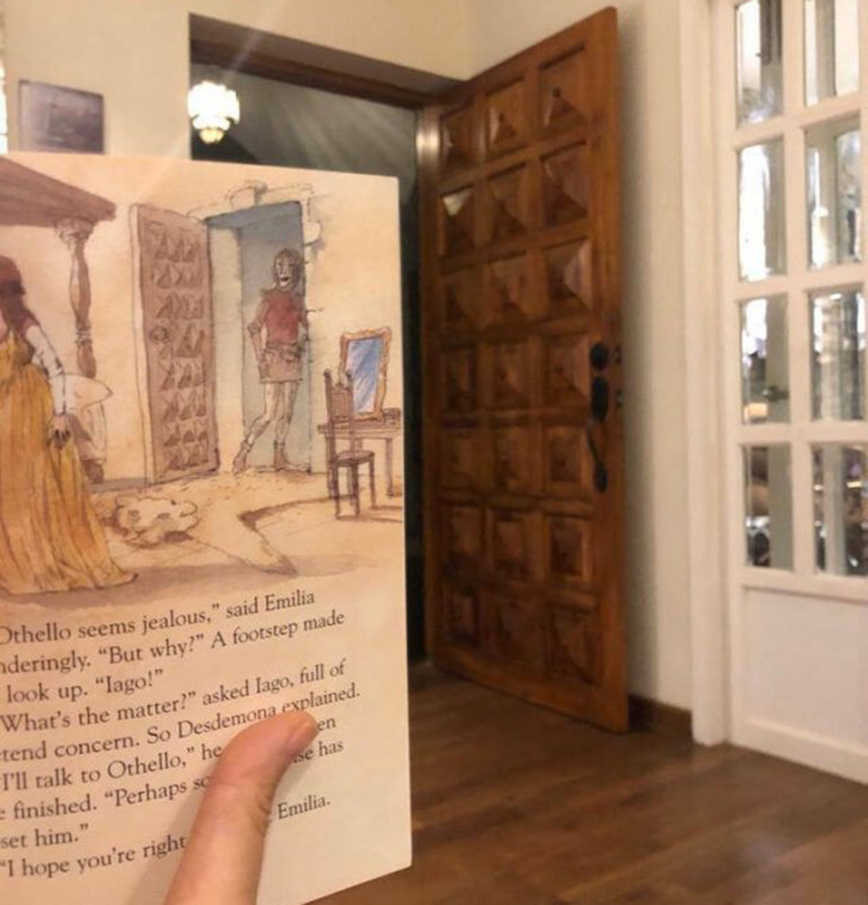 Othello seems jealous,” said Emilia
nderingly. “But why?” A footstep made
look up. “Iago!”
What’s the matter?” asked Iago, full of
tend concern. So Desdemona explained.
I’ll talk to Othello,” he en
finished. “Perhaps so se has
set him.”
“I hope you’re right Emilia.